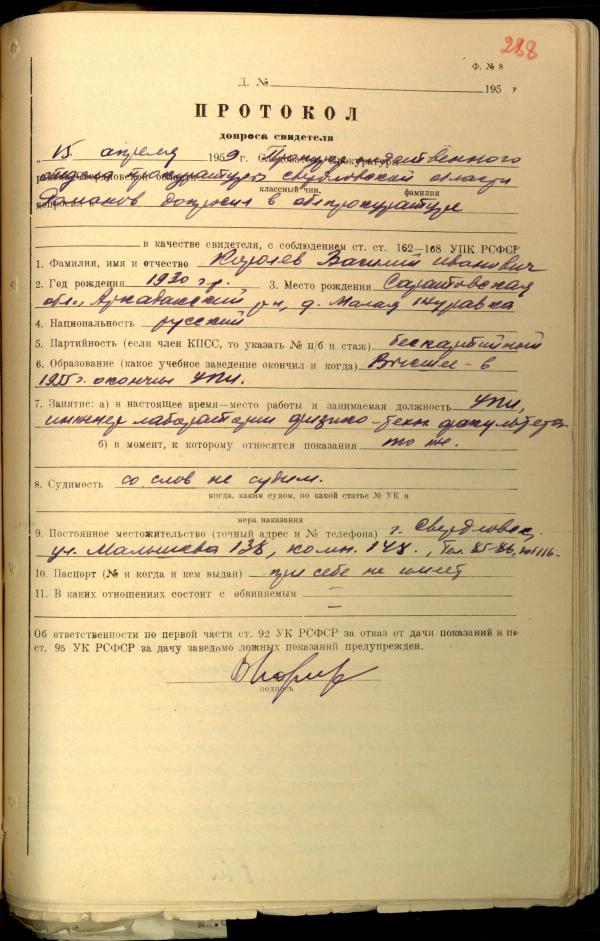 288
Ф. № 8
Д. № 195 г
ПРОТОКОЛ
допроса свидетеля
„15 апреля 1959 г. Прокурор следственного
отдела прокуратуры свердловской области
классный чин, фамилия
Романов допросил в облпрокуратуре
в качестве свидетеля, с соблюдением ст. ст. 162—168 УПК РСФСР
1. Фамилия, имя и отчество Королев Василий Иванович
2. Год рождения 1930 г р. 3. Место рождения Саратовская
обл., Аркадакский р-н, д. Малая Журавка
4. Национальность русский
5. Партийность (если член КПСС, то указать № п/б и стаж) беспартийный
6. Образование (какое учебное заведение окончил и когда) Высшее - в
1955 г. окончил УПИ.
7. Занятие: а) в настоящее время—место работы и занимаемая должность УПИ,
инженер лаборатории физико-техн. факультета
б) в момент, к которому относятся показания то же.
8. Судимость со слов не судим.
когда, каким судом, по какой статье № УК и
мера наказания
9. Постоянное местожительство (точный адрес и № телефона) г. Свердловск,
ул. Малышева 138, комн. 148., Тел. 85-86, доп 116-
10. Паспорт (№ и когда и кем выдан) при себе не имеет
11. В каких отношениях состоит с обвиняемым —
—
Об ответственности по первой части ст. 92 УК РСФСР за отказ от дачи показаний и по
ст. 95 УК РСФСР за дачу заведомо ложных показаний предупрежден.
подпись